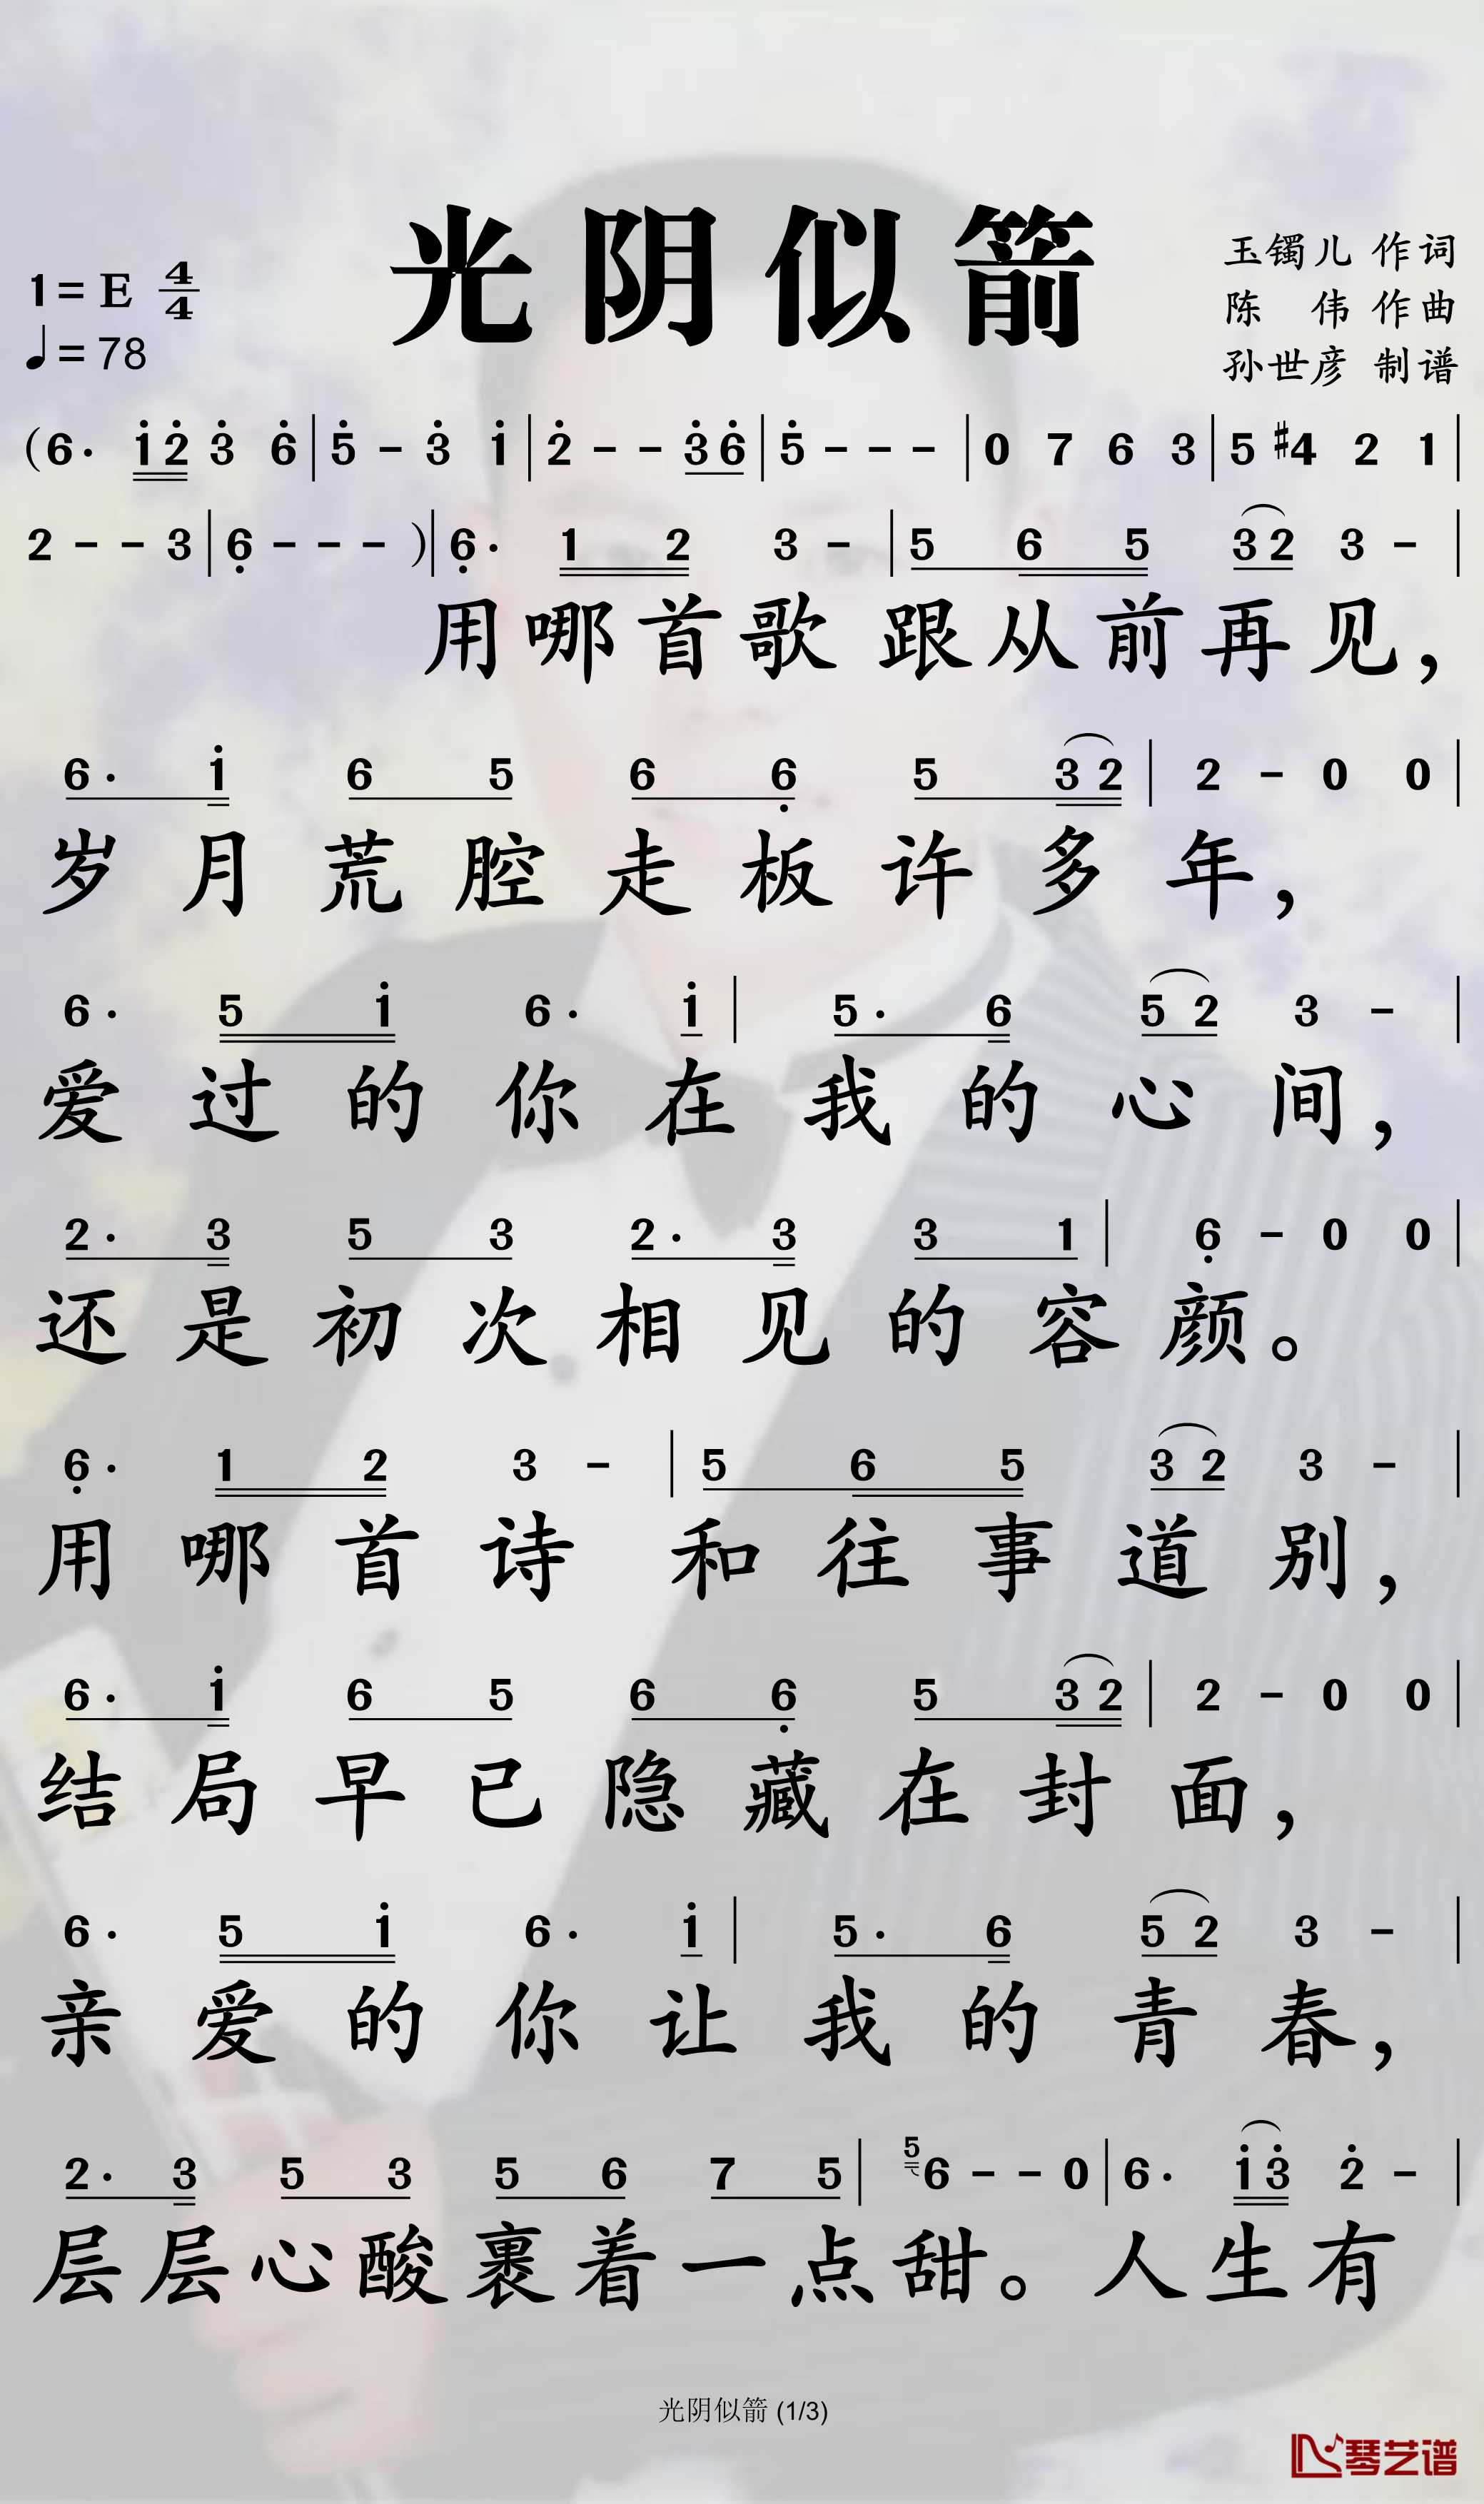 光阴似箭
1=E 4/4
♩=78
玉镯儿 作词
陈 伟 作曲
孙世彦 制谱
(6· i̇2̇ 3̇ 6̇|5̇ - 3̇ i̇|2̇ - - 3̇6̇|5̇ - - -|0 7 6 3|5 #4 2 1|
2 - - 3|6̣ - - - )|6̣· 1 2 3 -|5 6 5 32 3 -|
用哪首歌 跟从前再见，
6· i̇ 6 5 6 6̣ 5 32|2 - 0 0|
岁月荒腔走板许多年，
6· 5 i̇ 6· i̇|5· 6 52 3 -|
爱过的你在我的心间，
2· 3 5 3 2· 3 3 1|6̣ - 0 0|
还是初次相见的容颜。
6̣· 1 2 3 -|5 6 5 32 3 -|
用哪首诗 和往事道别，
6· i̇ 6 5 6 6̣ 5 32|2 - 0 0|
结局早已隐藏在封面，
6· 5 i̇ 6· i̇|5· 6 52 3 -|
亲爱的你让我的青春，
2· 3 5 3 5 6 7 5|5 6 - - 0|6· i̇3̇ 2̇ -|
层层心酸裹着一点甜。人生有
光阴似箭 (1/3)
琴艺谱